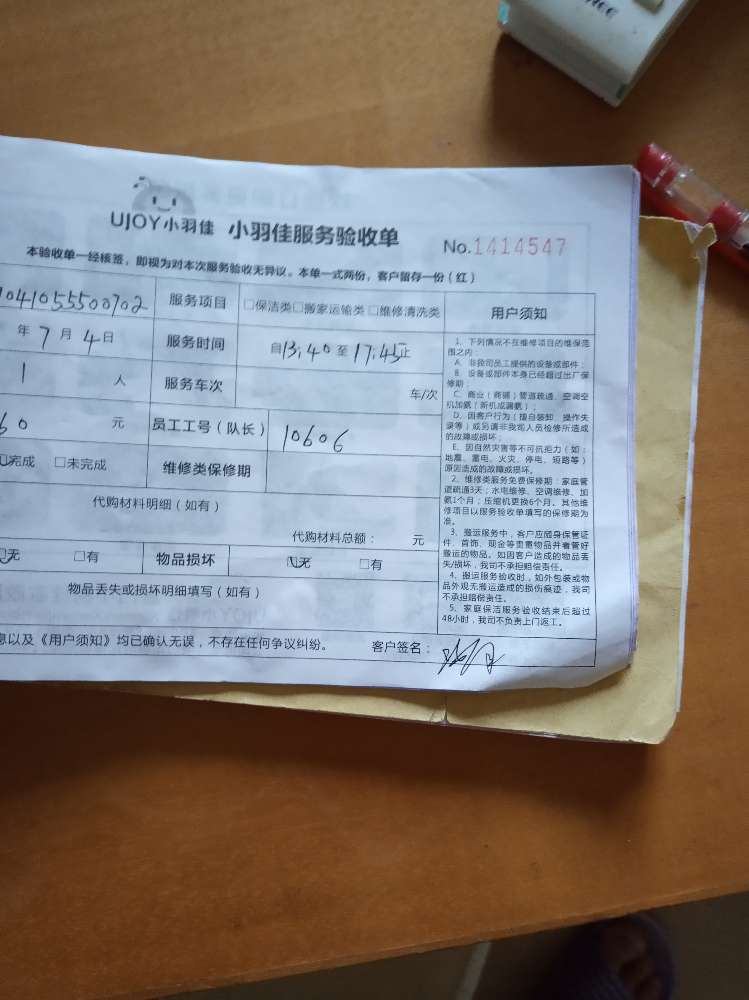 UJOY小羽佳 小羽佳服务验收单 No.1414547
本验收单一经核签，即视为对本次服务验收无异议。本单一式两份，客户留存一份（红）
1041055500702 服务项目 □保洁类□搬家运输类□维修清洗类
年7月4日 服务时间 自13:40至17:45止
1人 服务车次 车/次
60元 员工工号（队长） 10606
完成 □未完成 维修类保修期
代购材料明细（如有）
代购材料总额： 元
无 □有 物品损坏 □无 □有
物品丢失或损坏明细填写（如有）
息以及《用户须知》均已确认无误，不存在任何争议纠纷。 客户签名：
用户须知
1、下列情况不在维修项目的维保范
围之内：
A、非我司员工提供的设备或部件；
B、设备或部件本身已经超过出厂保
修期；
C、商业（商铺）管道疏通、空调空
机加氨（新机或漏氨）；
D、因客户行为（擅自装卸、操作失
误等）或另请非我司人员检修所造成
的故障或损坏；
E、因自然灾害等不可抗拒力（如：
地震、雷电、火灾、停电、短路等）
原因造成的故障或损坏。
2、维修类服务免费保修期：家庭管
道疏通3天；水电维修、空调维修、加
氨1个月；压缩机更换6个月。其他维
修项目以服务验收单填写的保修期为
准。
3、搬运服务中，客户应随身保管证
件、首饰、现金等贵重物品并看管好
搬运的物品。如因客户造成的物品丢
失/损坏，我司不承担赔偿责任。
4、搬运服务验收时，如外包装或物
品外观无搬运造成的损伤痕迹，我司
不承担赔偿责任。
5、家庭保洁服务验收结束后超过
48小时，我司不负责上门返工。